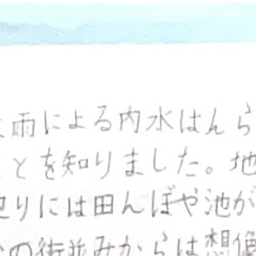 雨による内水はんら
とを知りました。地
辺りには田んぼや池が
の街並みからは想像